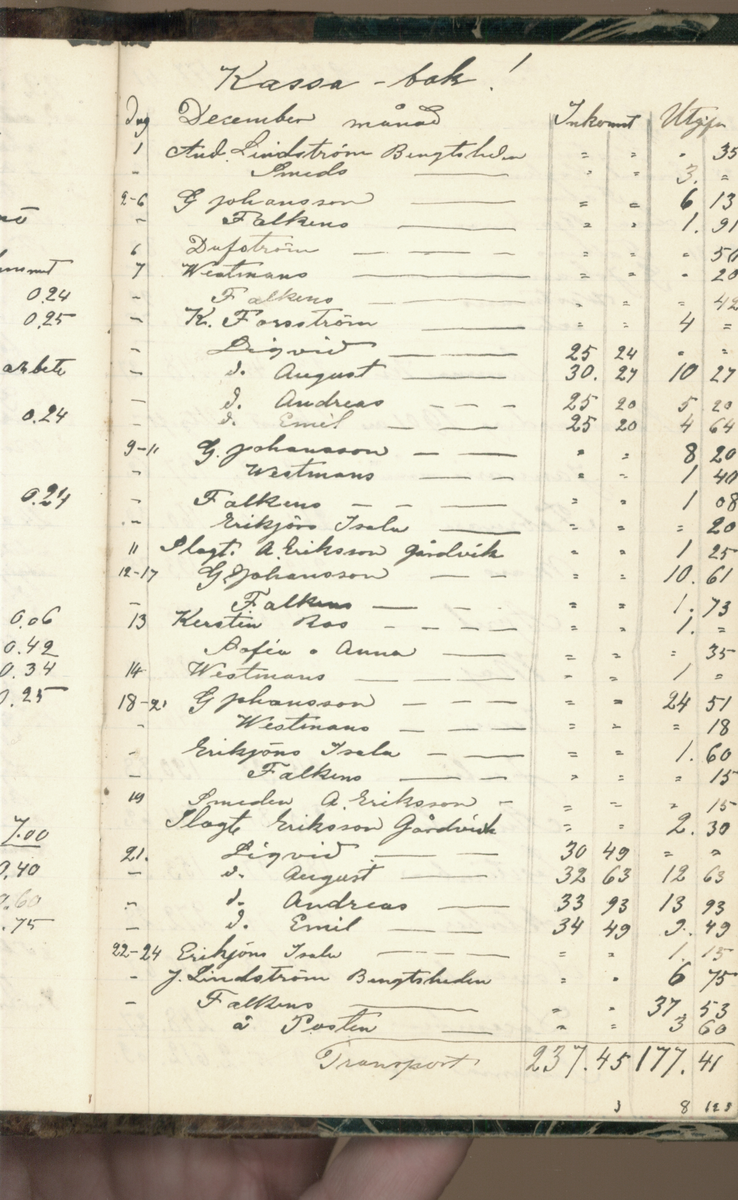 Kassa-bok!
Dag December månad Inkomst Utgifter
1 And. Lindström Bengtsheden " " " 35
" Smeds " " 3. "
2-6 G Johansson " " 6 13
" Falkens " " 1. 91
6 Dufström " 50
7 Westmans " " " 20
" Falkens " " " 42
" K. Forsström " " 4 "
Liqvid 25 24 " "
" d. August 30. 27 10 27
" d. Andreas 25 20 5 20
" d. Emil 25 20 4 64
9-11 G. Johansson " " 8 20
" Westmans " " 1 40
" Falkens " " 1 08
" Erikjöns Isala " " " 20
11 Slagt. A. Eriksson Gårdvik " " 1 25
12-17 G Johansson " " 10. 61
" Falkens " " 1. 73
13 Kerstin Ros " " 1. "
Sofia o Anna " " " 35
14 Westmans " " 1 "
18-21 G Johansson " " 24 51
" Westmans " " " 18
" Erikjöns Isala " " 1. 60
" Falkens " " " 15
19 Smeden A. Eriksson " " " 15
Slagt. Eriksson Gårdvik " " 2. 30
21. Liqvid 30 49 " "
" d. August 32 63 12 63
" d. Andreas 33 93 13 93
" d. Emil 34 49 9. 49
22-24 Erikjöns Isala " " 1. 15
" J. Lindström Bengtsheden " " 6 75
" Falkens " " 37. 53
" å Posten " " 3 60
Transport 237.45 177.41
3 8
0.24
0.25
arbete
0.24
0.24
0.06
0.42
0.34
0.25
7.00
0.40
.75